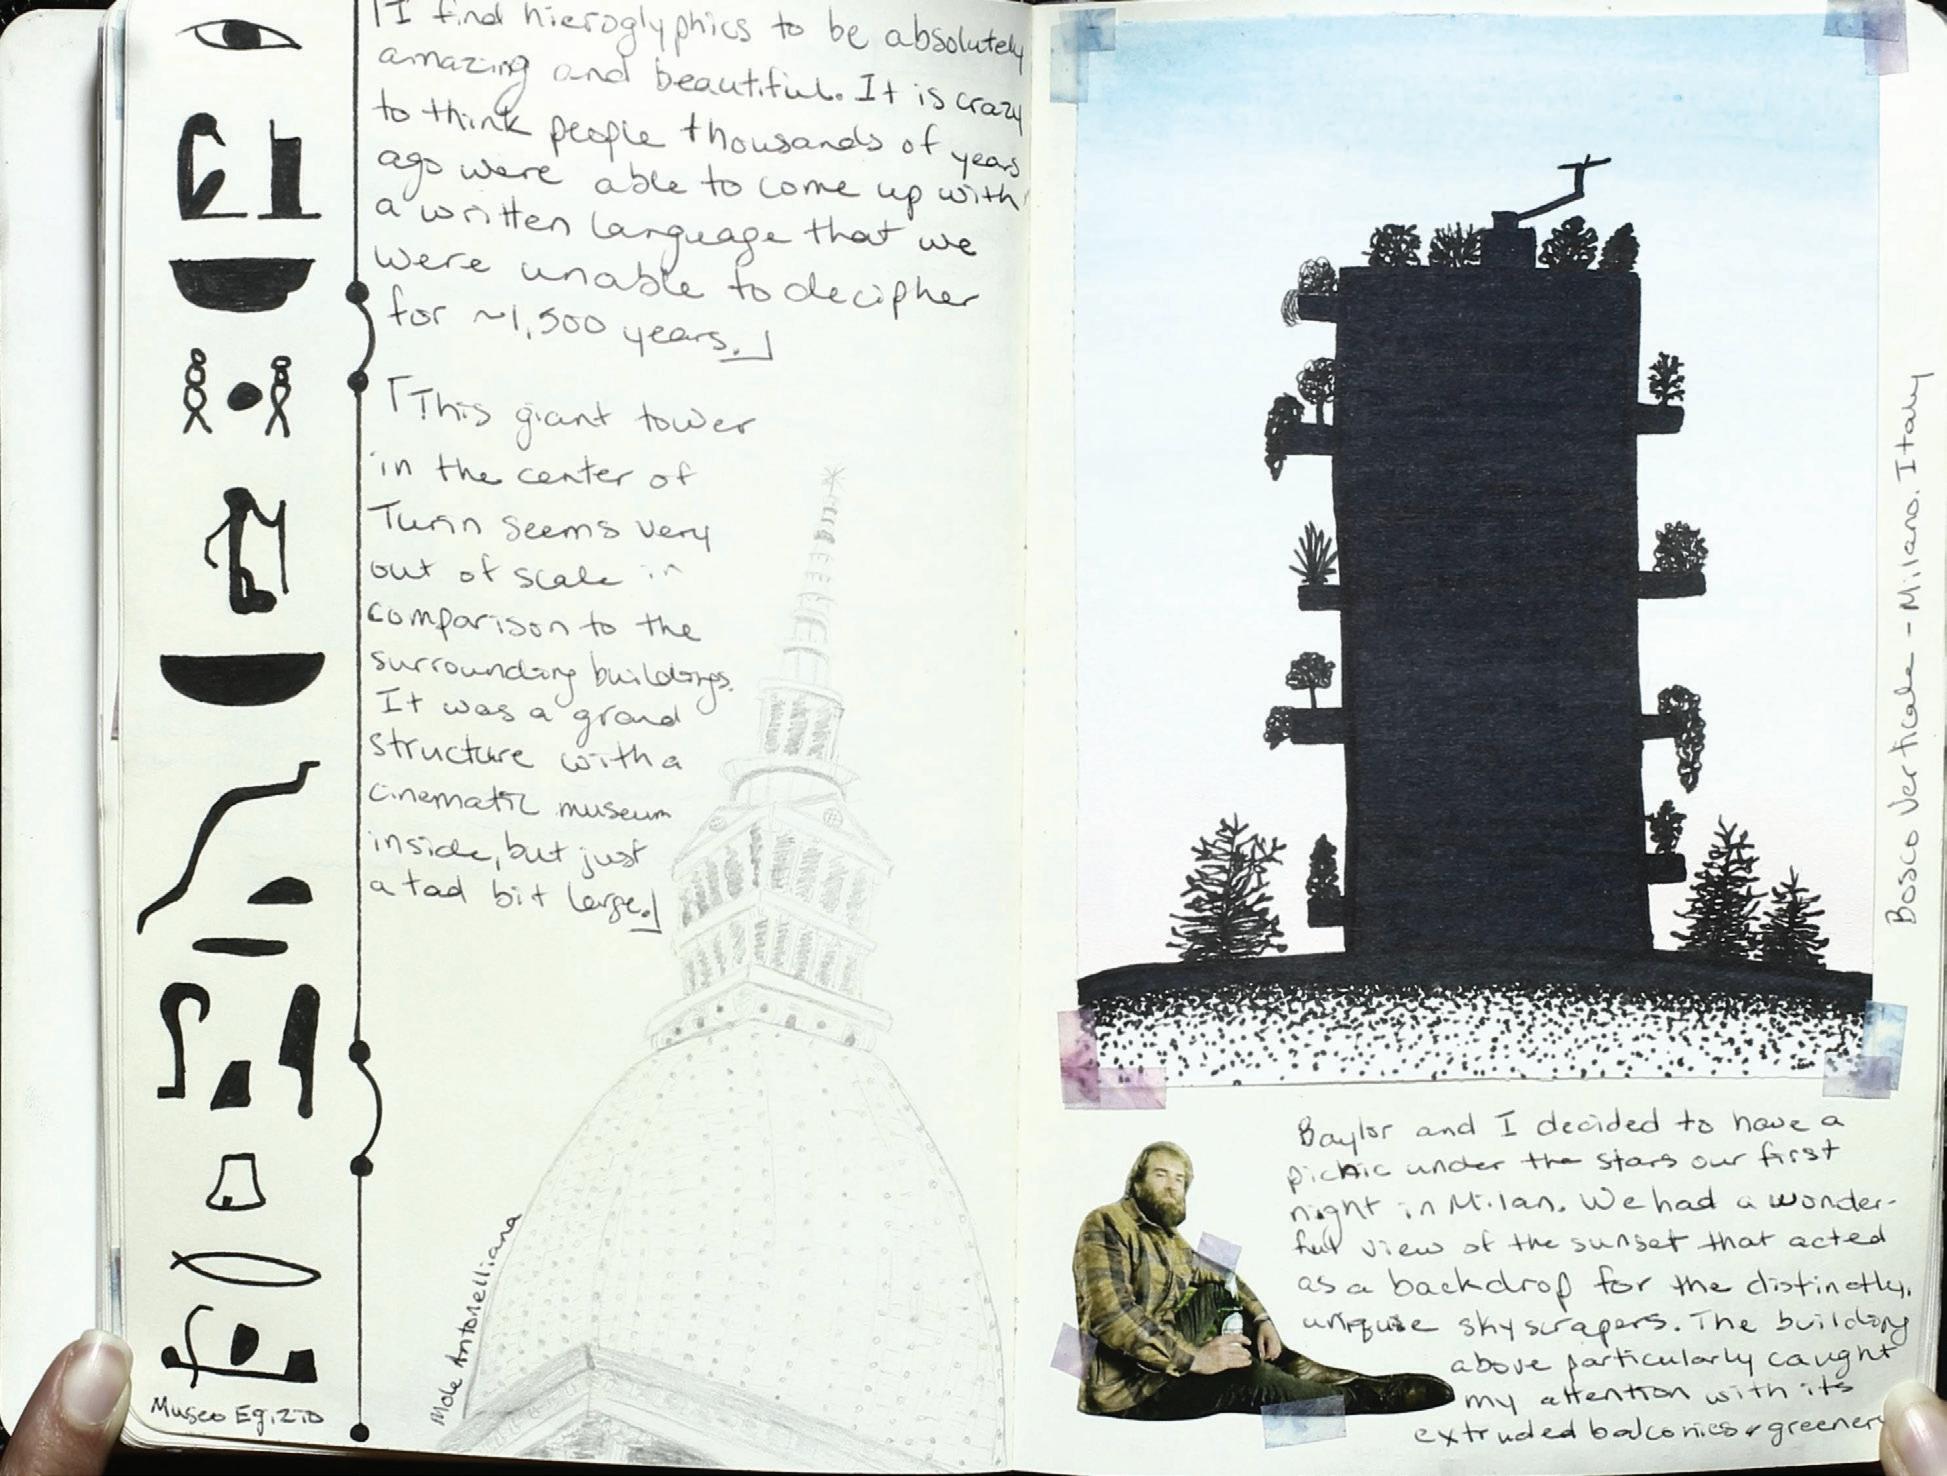 I find hieroglyphics to be absolutely
amazing and beautiful. It is crazy
to think people thousands of years
ago were able to come up with
a written language that we
were unable to decipher
for ~1,500 years.
This giant tower
in the center of
Turin seems very
out of scale in
comparison to the
surrounding buildings.
It was a grand
structure with a
cinematic museum
inside, but just
a tad bit large.
Museo Egizio
Mole Antonelliana
Bosco Verticale - Milano, Italy
Baylor and I decided to have a
picnic under the stars our first
night in Milan. We had a wonder-
ful view of the sunset that acted
as a backdrop for the distinctly,
unique skyscrapers. The building
above particularly caught
my attention with its
extruded balconies & greenery